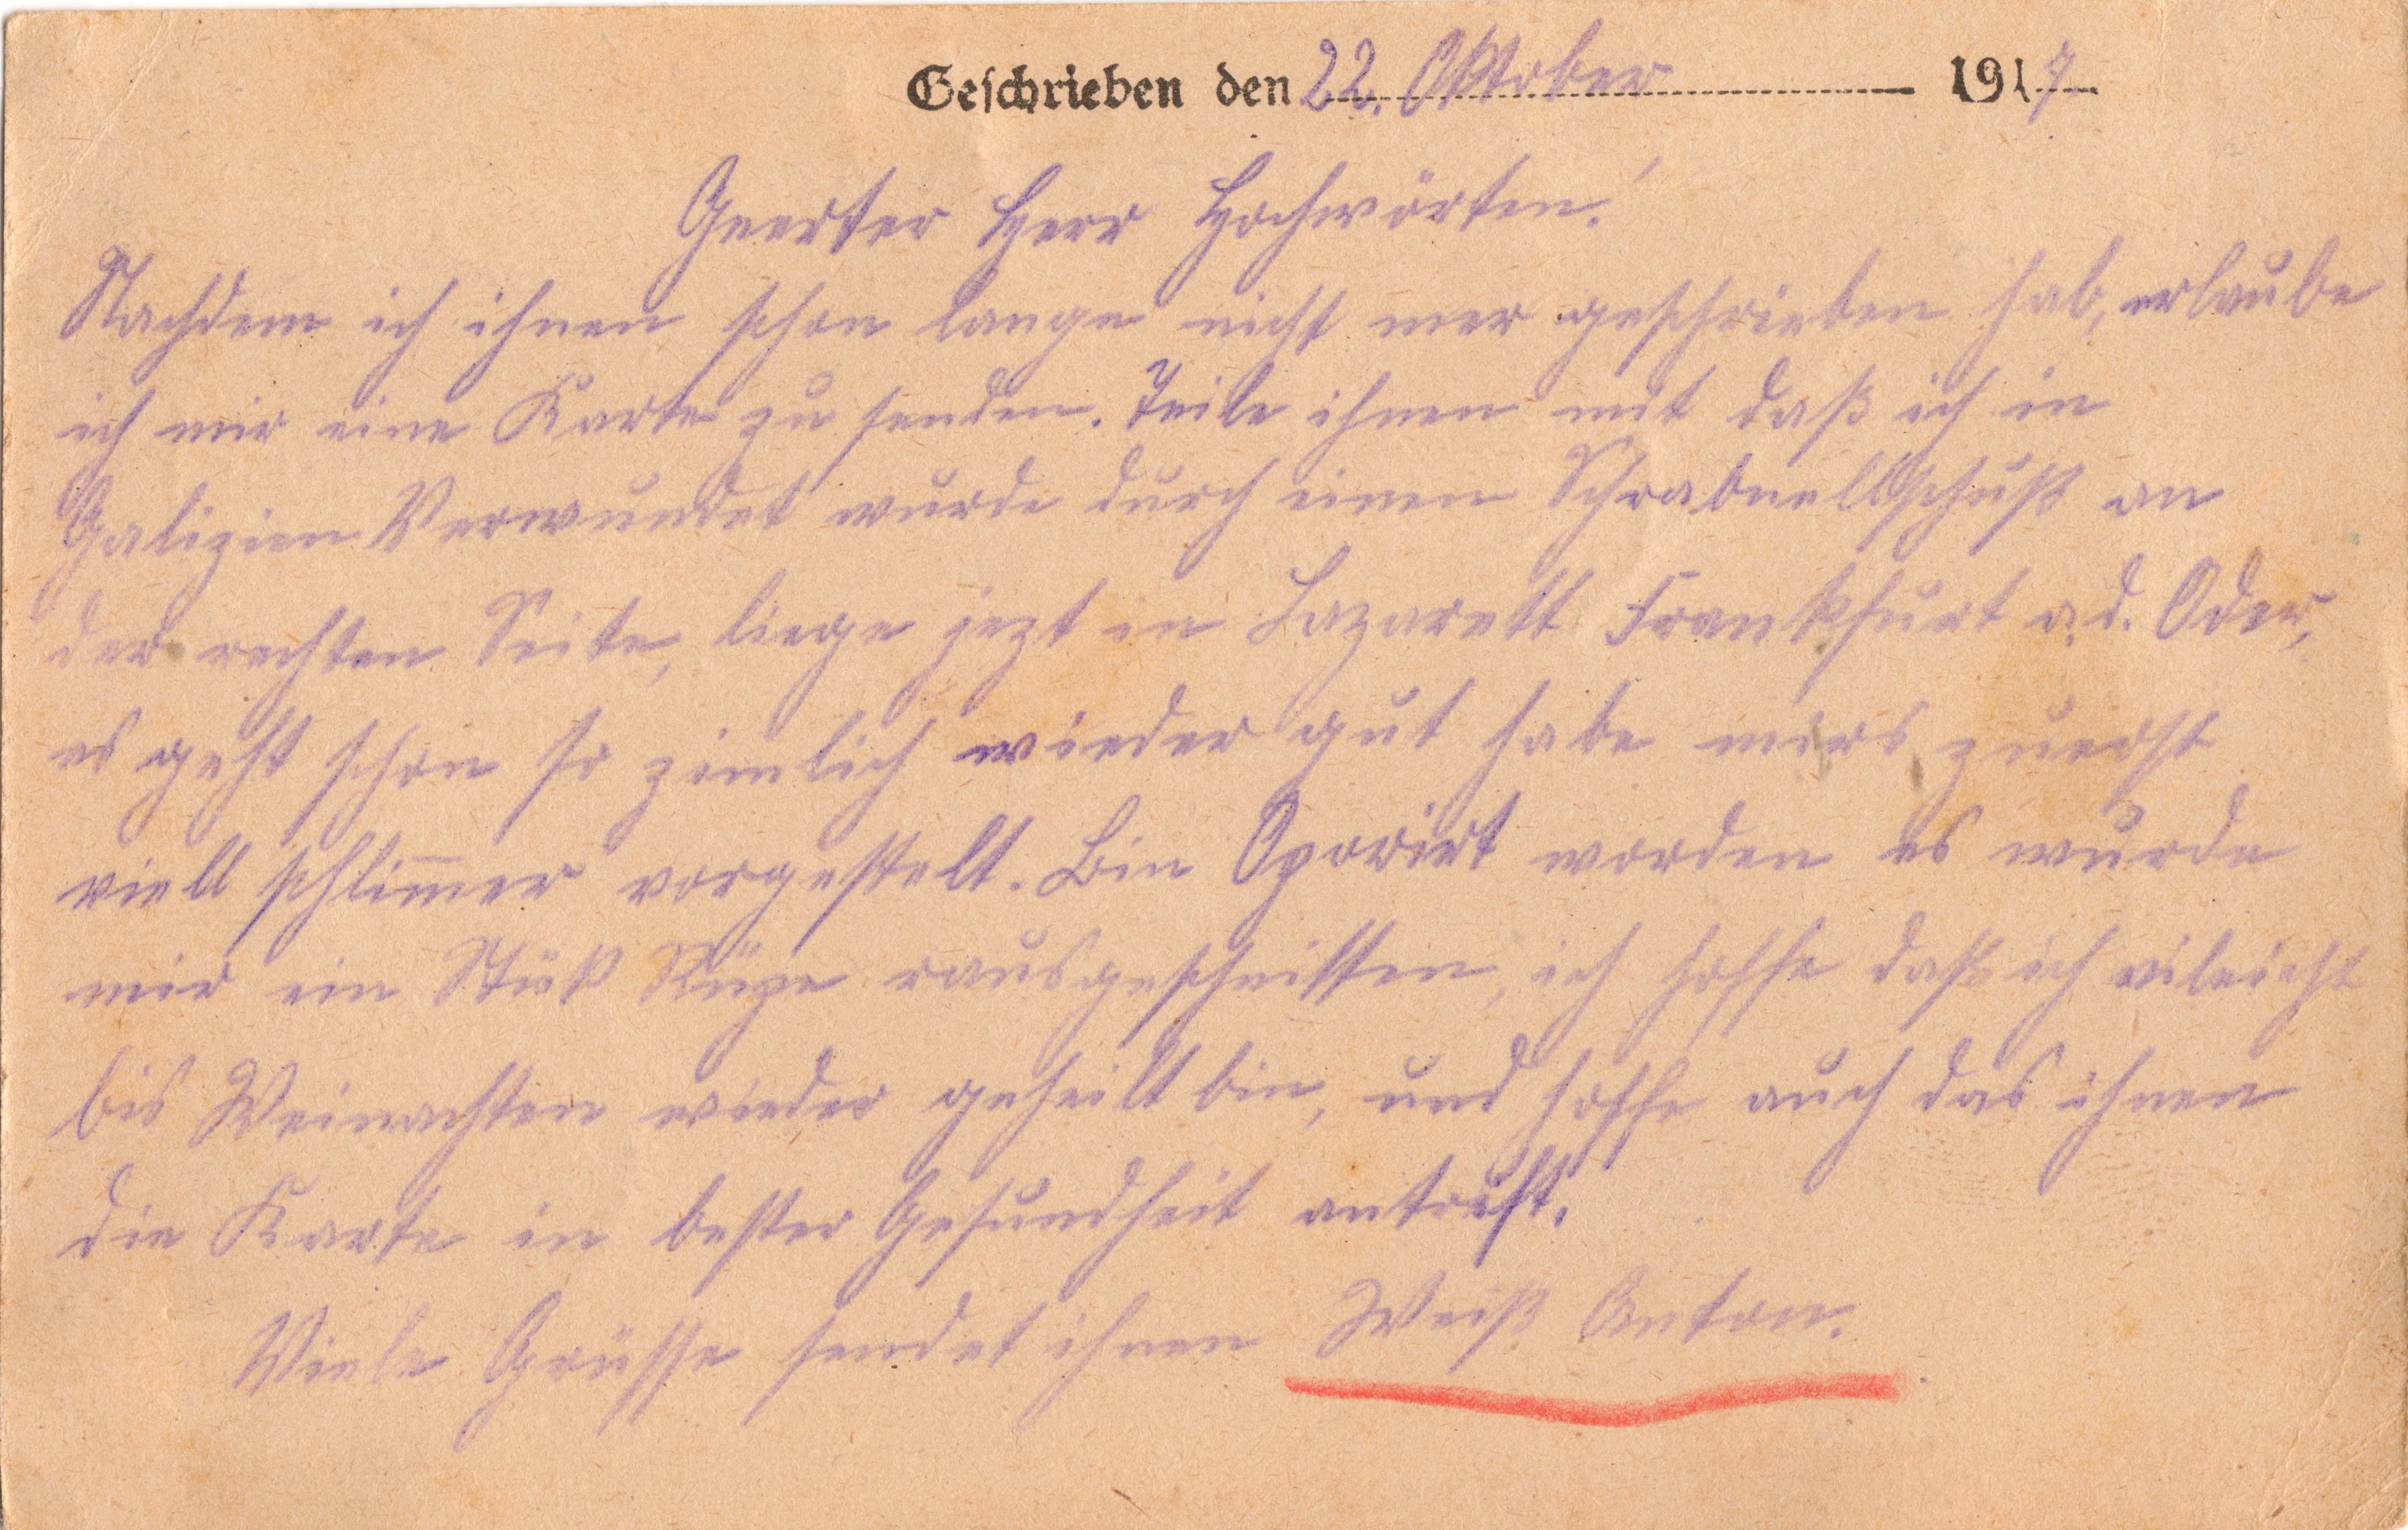 Geschrieben den 22. Oktober 1917
Geerter Herr Hochwörten!
Nachdem ich ihnen schon lange nicht mer geschrieben hab, erlaube
ich mir eine Karte zu senden. Teile ihnen mit daß ich in
Galizien Verwundet wurde durch einen Schrabnellschuß an
der rechten Seite, liege jezt in Lazarett Frankfurt a. d. Oder,
es geht schon so zimlich wieder gut habe mirs zuerst
viell schlim̅er vorgestelt. Bin Operirt worden es wurde
mir ein Stük Rüpe rausgeschnitten, ich hoffe daß ich vileicht
bis Weinachten wieder geheilt bin, und hoffe auch das ihnen
die Karte in bester Gesundheit antrift.
Viele Grüsse sendet ihnen Weiß Anton.